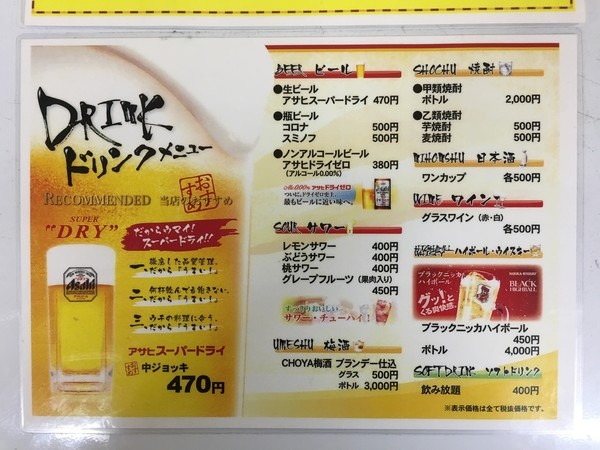 DRINK
ドリンクメニュー
RECOMMENDED 当店のおすすめ
おすすめ
SUPER
"DRY"
だからウマイ!
スーパードライ!!
Asahi
一、徹底した品質管理。
だから「うまい!」
二、何杯飲んでも飽きない。
だから「うまい!」
三、ウチの料理に合う。
だから「うまい!」
アサヒスーパードライ
中ジョッキ
470円
BEER ビール
●生ビール
アサヒスーパードライ 470円
●瓶ビール
コロナ 500円
スミノフ 500円
●ノンアルコールビール
アサヒドライゼロ 380円
(アルコール0.00%)
アサヒドライゼロ
ついに、ドライゼロ史上、
最もビールに近い味へ。
SOUR サワー
レモンサワー 400円
ぶどうサワー 400円
桃サワー 400円
グレープフルーツ(果肉入り)
450円
すっきりおいしい
サワー・チューハイ!
UMESHU 梅酒
CHOYA梅酒 ブランデー仕込
グラス 500円
ボトル 3,000円
SHOCHU 焼酎
●甲類焼酎
ボトル 2,000円
●乙類焼酎
芋焼酎 500円
麦焼酎 500円
NIHONSHU 日本酒
ワンカップ 各500円
WINE ワイン
グラスワイン(赤・白)
各500円
ハイボール・ウイスキー
ブラックニッカ
ハイボール
グッ!と
くる爽快感。
NIKKA WHISKY
BLACK
HIGHBALL
ブラックニッカハイボール
450円
ボトル 4,000円
SOFT DRINK ソフトドリンク
飲み放題 400円
※表示価格は全て税抜価格です。